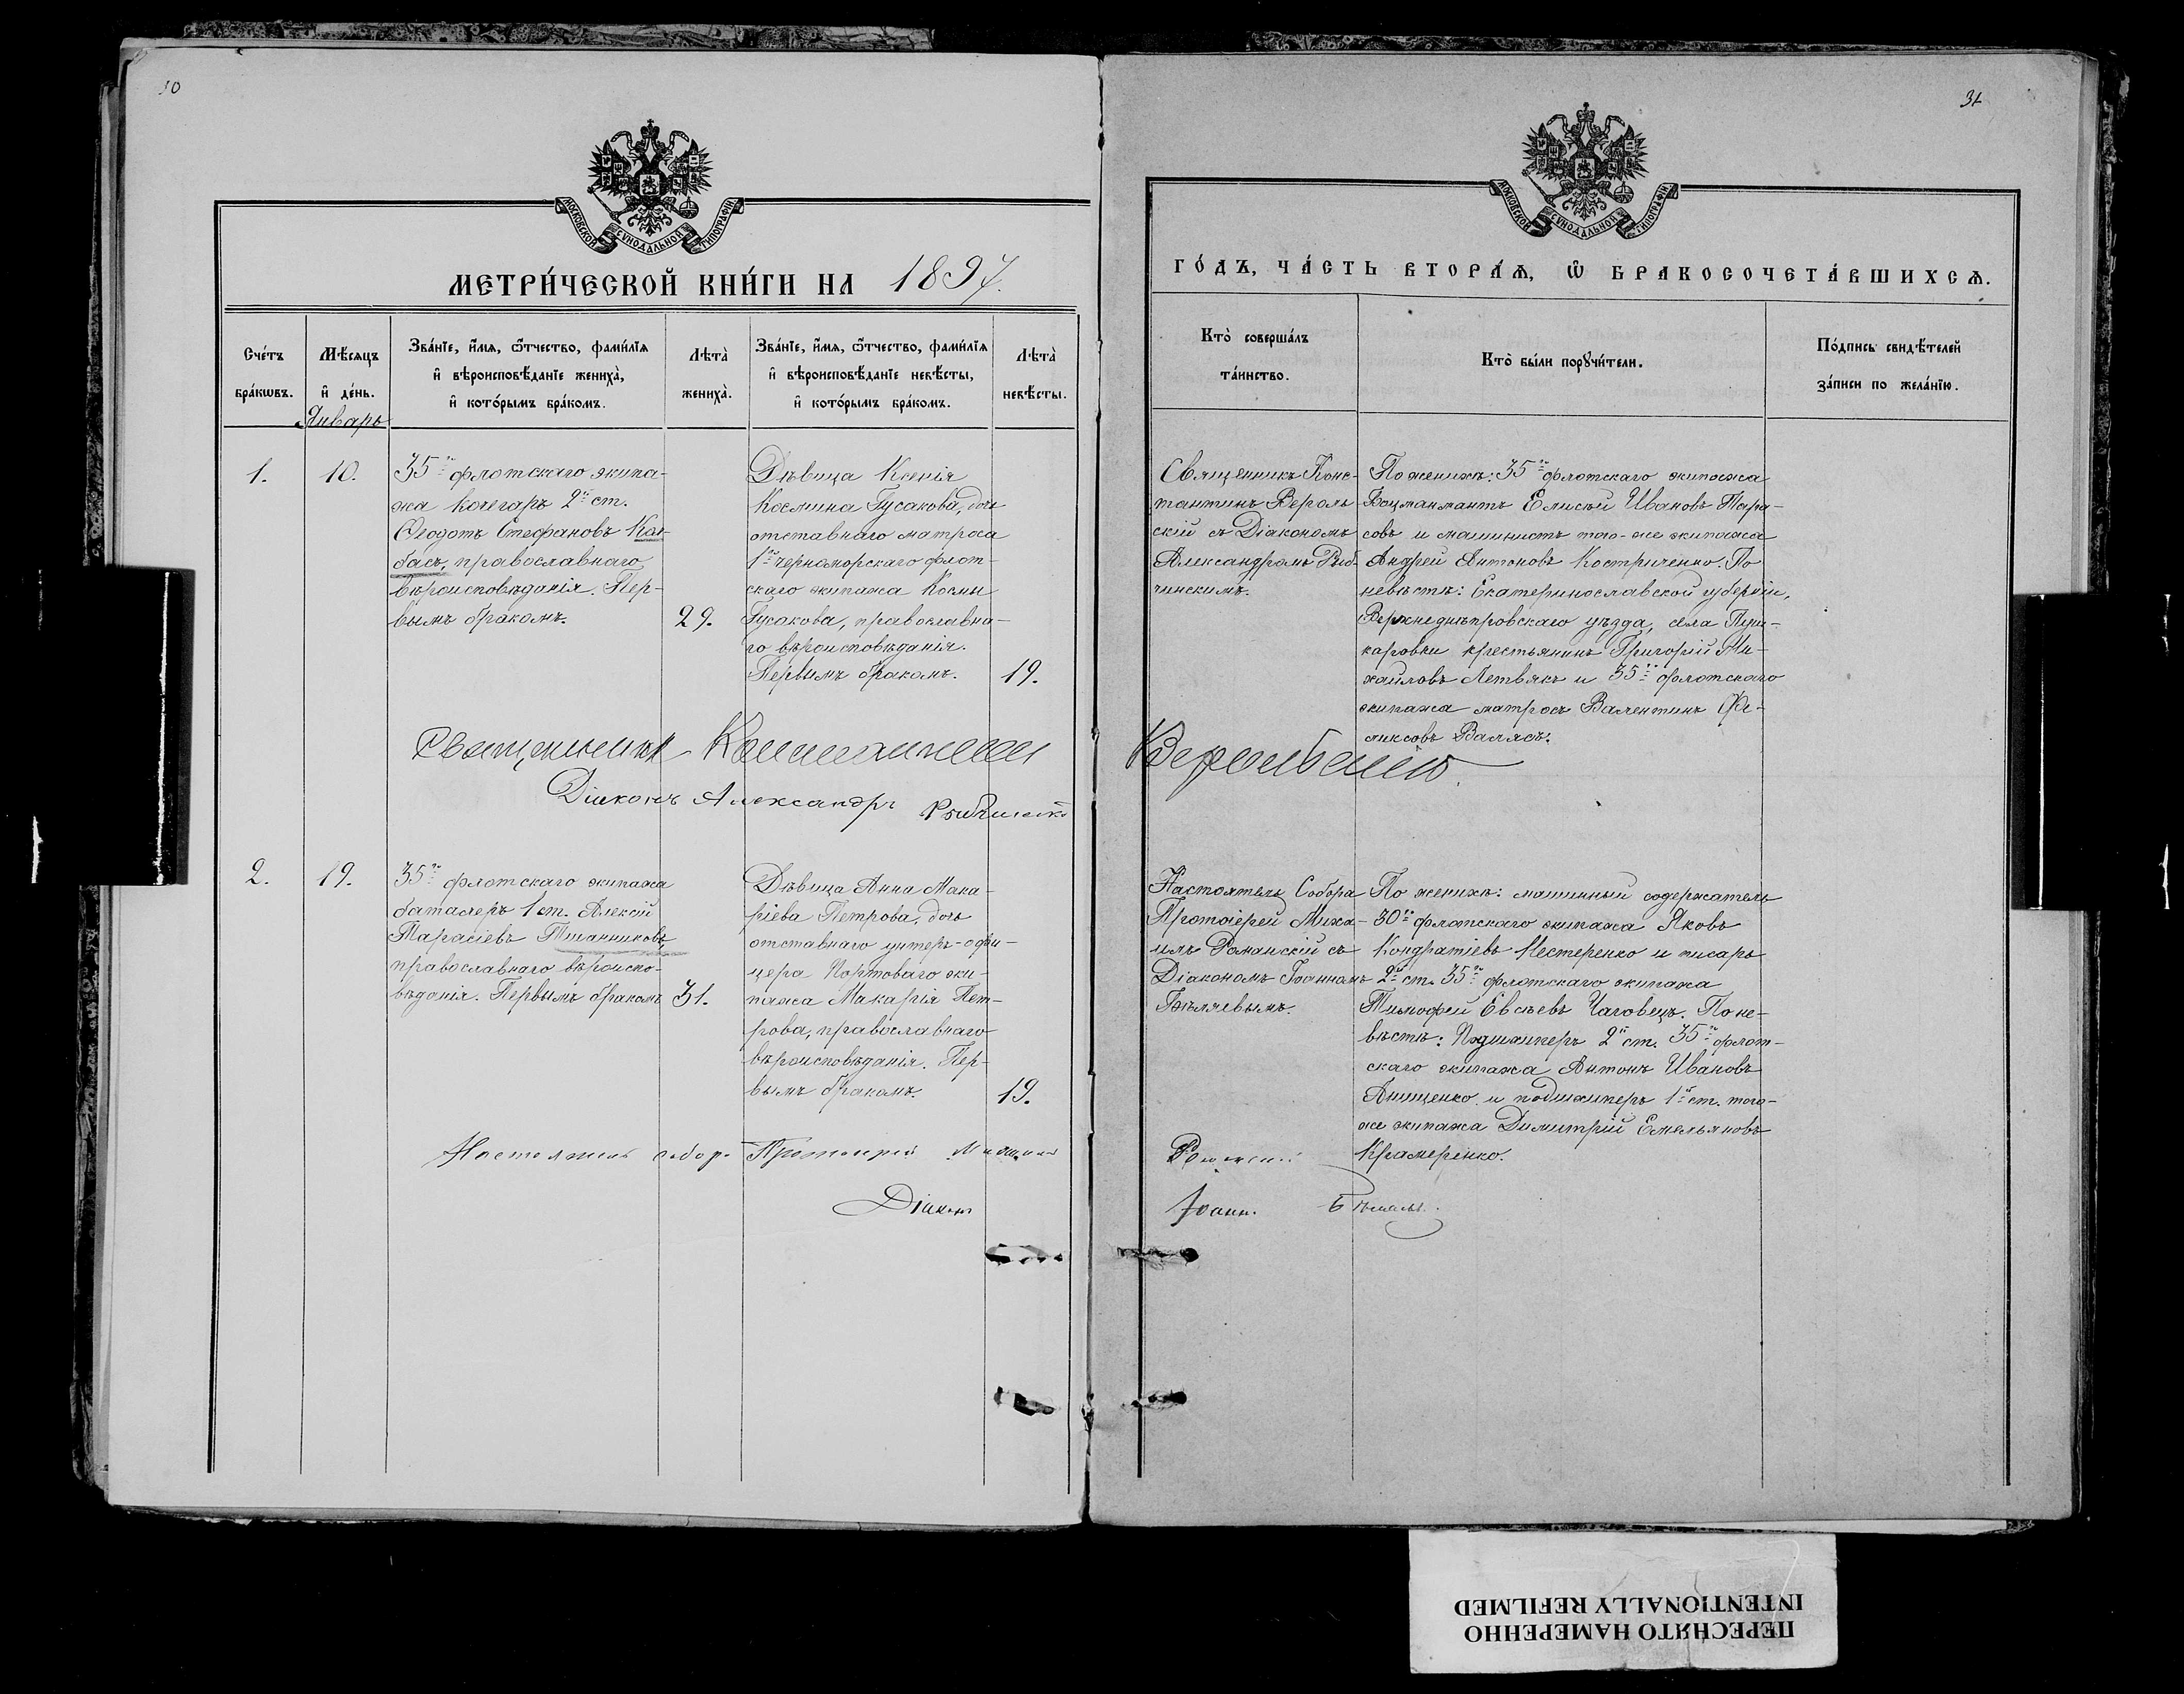 31
МОСКОВСКОЙ СѴНОДАЛЬНОЙ ТИПОГРАФІИ
МЕТРИ́ЧЕСКОЙ КНИ́ГИ НА 1897.
Сче́тъ бра́кѡвъ.
Мѣ́сяцъ и҆ де́нь.
Зва́нїе, и҆́мѧ, ѻ҆́тчество, фами́лїѧ
и҆ вѣроисповѣ́данїе жениха̀,
и҆ кото́рымъ бра́комъ.
Лѣта̀ жениха̀.
Зва́нїе, и҆́мѧ, ѻ҆́тчество, фами́лїѧ
и҆ вѣроисповѣ́данїе невѣ́сты,
и҆ кото́рымъ бра́комъ.
Лѣта̀ невѣ́сты.
Январь
1.
10.
35го флотскаго экипа-
жа кочегаръ 2й ст.
Ѳеодотъ Стефановъ
басъ, православнаго
вѣроисповѣданія. Пер-
вымъ бракомъ.
29.
Дѣвица Ксенія
Космина Гусакова, дочь
отставнаго матроса
1го черноморскаго флот-
скаго экипажа Космы
Гусакова, православна-
го вѣроисповѣданія.
Первымъ бракомъ.
19.
Священникъ Константинъ
Діаконъ Александръ
2.
19.
35го флотскаго экипажа
баталеръ 1 ст. Алексій
Тарасіевъ Тшанниковъ,
православнаго вѣроиспо-
вѣданія. Первымъ бракомъ
31.
Дѣвица Анна Мака-
ріева Петрова, дочь
отставнаго унтеръ-офи-
цера Портоваго эки-
пажа Макарія Пет-
рова, православнаго
вѣроисповѣданія. Пер-
вымъ бракомъ.
19.
Настоятель собор. Протоіерей Михаилъ
Діаконъ
МОСКОВСКОЙ СѴНОДАЛЬНОЙ ТИПОГРАФІИ
ГО́ДЪ, ЧА́СТЬ ВТОРА́Ѧ, Ѡ҆ БРАКОСОЧЕТА́ВШИХСѦ.
Кто̀ соверша́лъ
та́инство.
Кто̀ бы́ли порꙋчи́тели.
По́дпись свидѣ́телей
за́писи по жела́нїю.
Священникъ Конс-
тантинъ Вероль
скій съ Діакономъ
Александромъ Рыб-
чинскимъ.
По женихѣ: 35го флотскаго экипажа
Боцманматъ Елисѣй Ивановъ Тара-
совъ и машинистъ того-же экипажа
Андрей Антоновъ Костриченко. По
невѣстѣ: Екатеринославской губерніи,
Верхнеднѣпровскаго уѣзда, села Пуш-
каровки крестьянинъ Григорій Ми-
хайловъ Летвякъ и 35го флотскаго
экипажа матросъ Валентинъ Фе-
ликсовъ Валясъ.
Настоятель Собора
Протоіерей Миха-
илъ Романскій съ
Діакономъ Іоанномъ
Бѣляевымъ.
По женихѣ: машинный содержатель
30го флотскаго экипажа Яковъ
Кондратіевъ Нестеренко и писарь
2й ст. 35го флотскаго экипажа
Тимофей Евсѣевъ Чаговецъ. По не-
вѣстѣ: Подшкиперъ 2й ст. 35го флот-
скаго экипажа Антонъ Ивановъ
Анищенко и подшкиперъ 1й ст. того-
же экипажа Димитрій Емельяновъ
Крамеренко.
Іоанн. Бѣляевъ.
ПЕРЕСНЯТО НАМЕРЕННО
INTENTIONALLY REFILMED